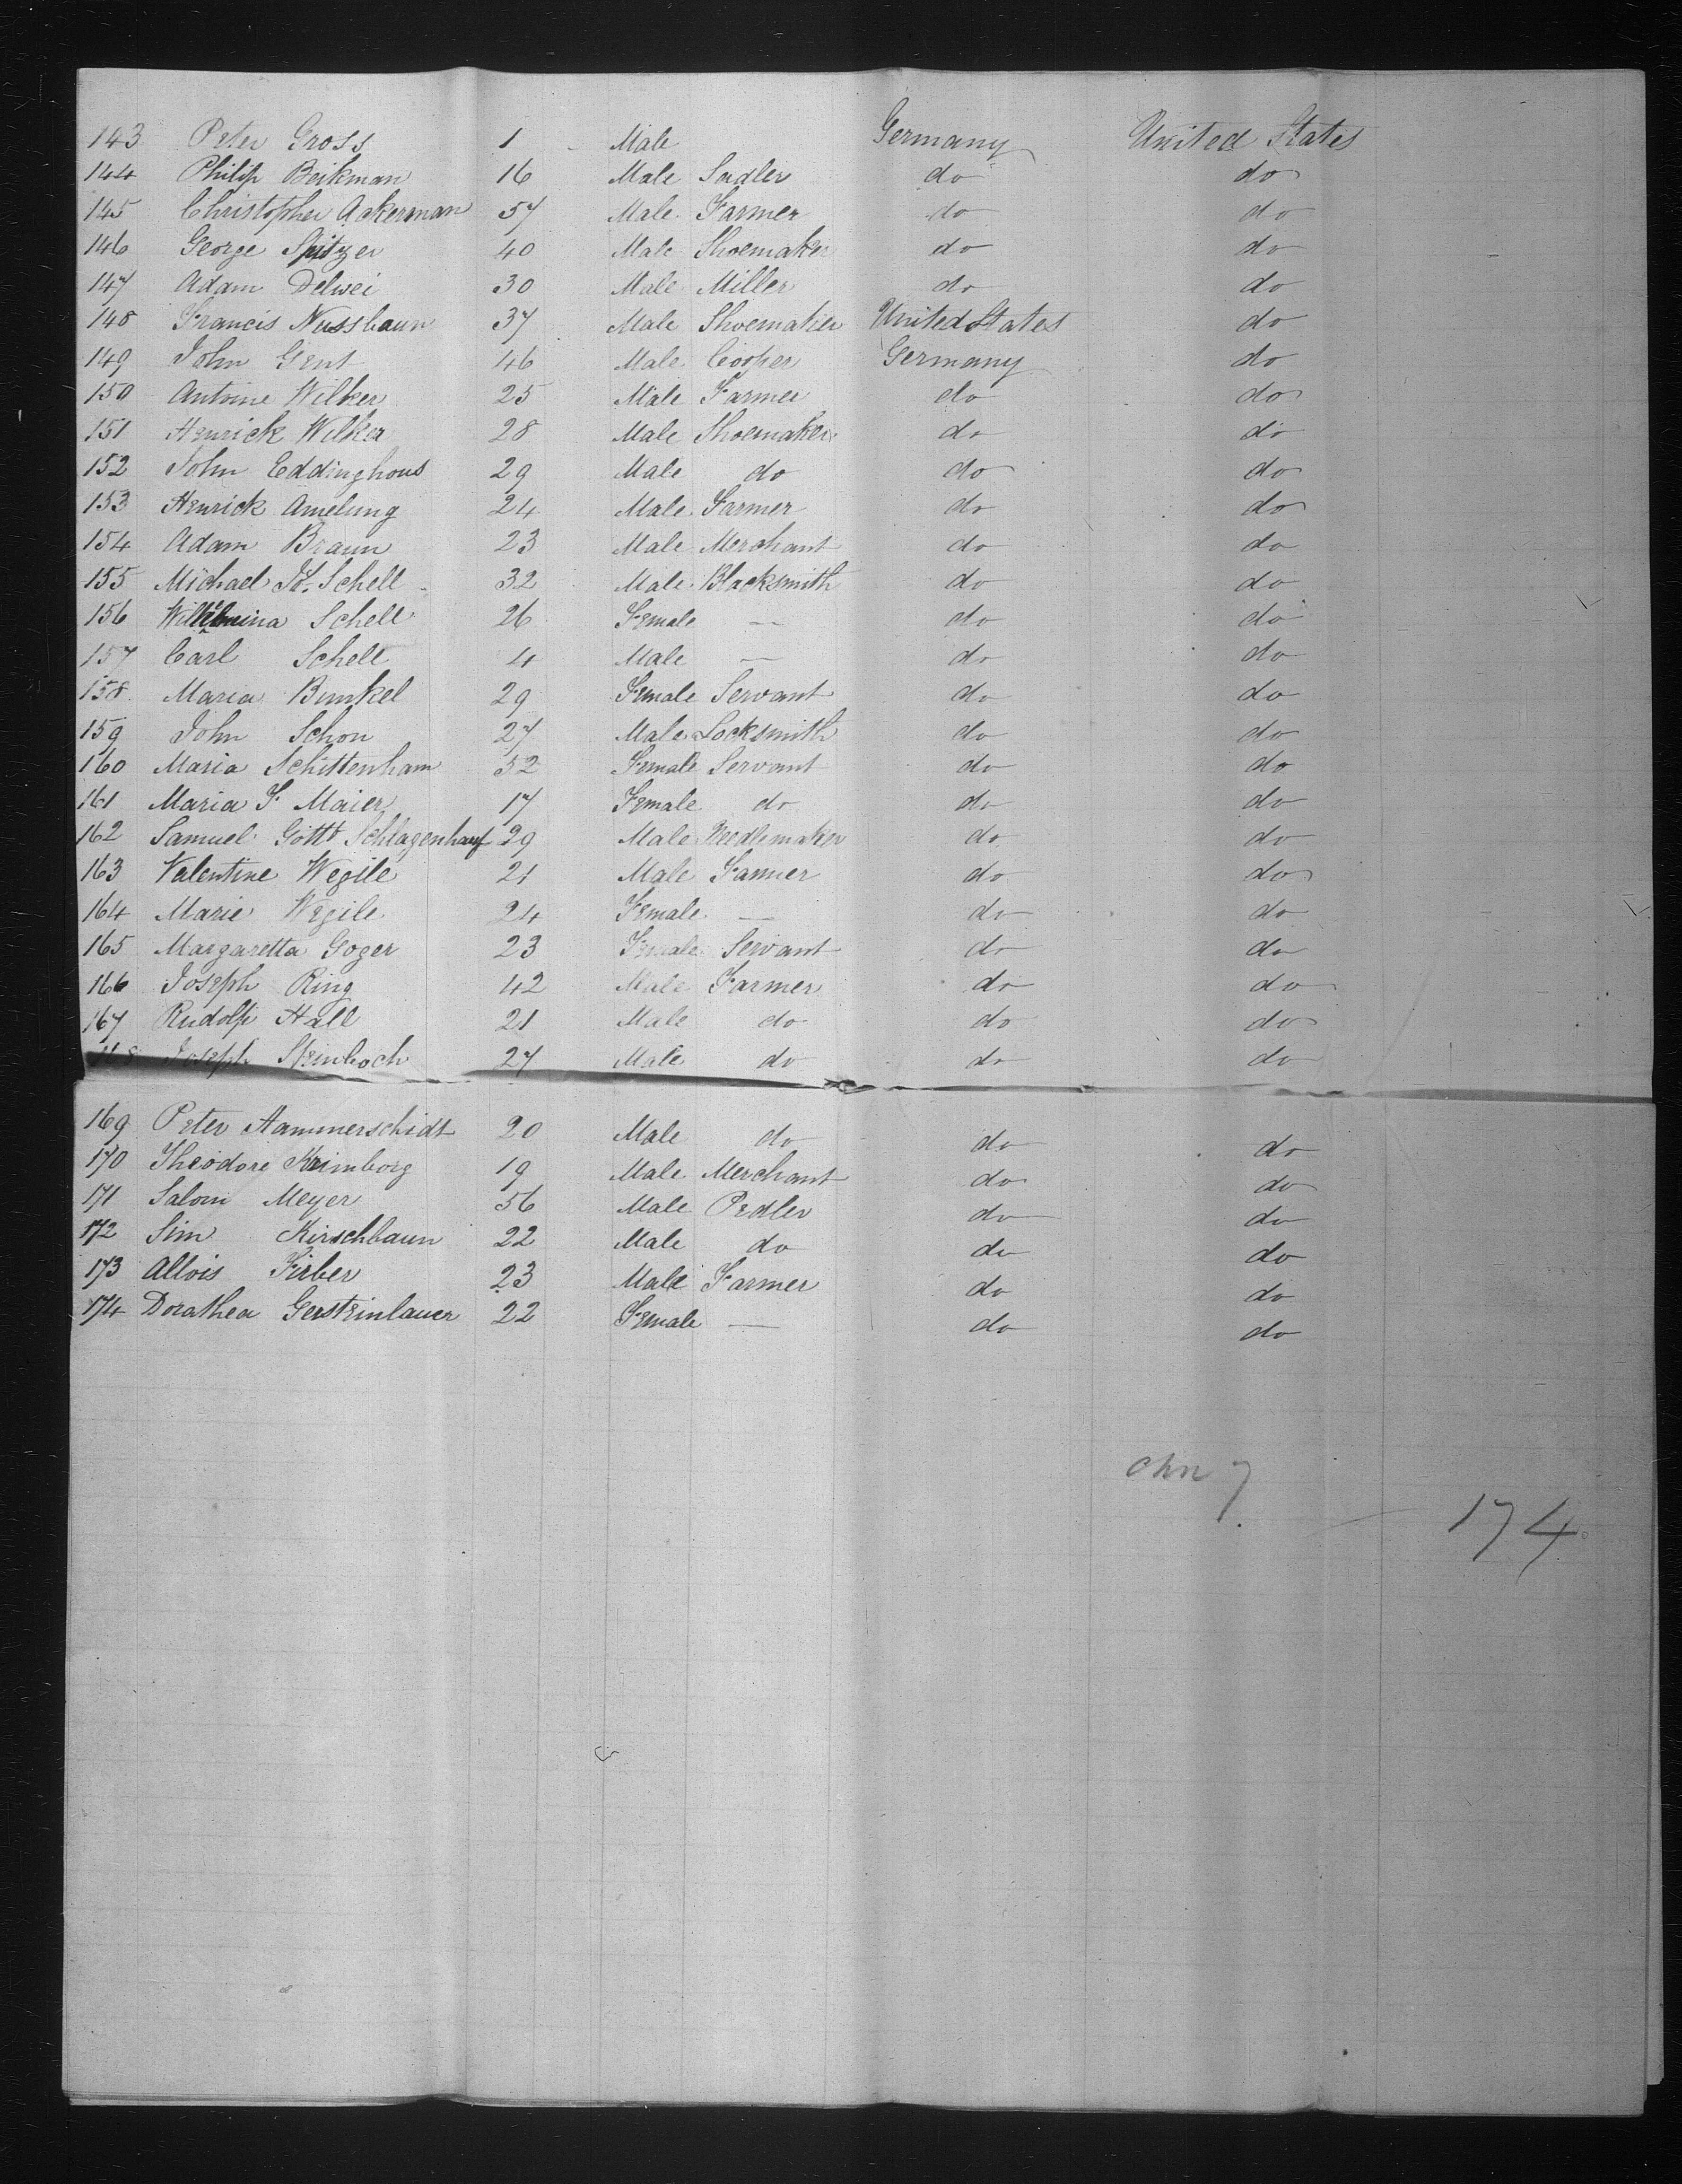 143 Peter Gross 1 Male Germany United States
144 Philip Beikman 16 Male Sadler do do
145 Christopher Ackerman 57 Male Farmer do do
146 George Spitzer 40 Male Shoemaker do do
147 Adam Delwei 30 Male Miller do do
148 Francis Nussbaum 37 Male Shoemaker United States do
149 John Gent 46 Male Cooper Germany do
150 Antoine Wilker 25 Male Farmer do do
151 Henrick Wilker 28 Male Shoemaker do do
152 John Eddinghous 29 Male do do do
153 Henrick Amelung 24 Male Farmer do do
154 Adam Braun 23 Male Merchant do do
155 Michael Schell 32 Male Blacksmith do do
156 Wilhelmina Schell 26 Female — do do
157 Carl Schell 4 Male — do do
158 Maria Bunkel 29 Female Servant do do
159 John Schon 27 Male Locksmith do do
160 Maria Schittenham 52 Female Servant do do
161 Maria S. Maier 17 Female do do do
162 Samuel Gottt Schlagenhauf 29 Male Needlemaker do do
163 Valentine Wegile 21 Male Farmer do do
164 Marie Wegile 24 Female — do do
165 Margaretta Goger 23 Female Servant do do
166 Joseph Ring 42 Male Farmer do do
167 Rudolp Hall 21 Male do do do
168 Joseph Steinboch 27 Male do do do
169 Peter Hammerschidt 20 Male do do do
170 Theodore Krimborg 19 Male Merchant do do
171 Salom Meyer 56 Male Pedler do do
172 Sim Kirschbaum 22 Male do do do
173 Allois Firber 23 Male Farmer do do
174 Dorathea Gersteinlauer 22 Female — do do
7
174